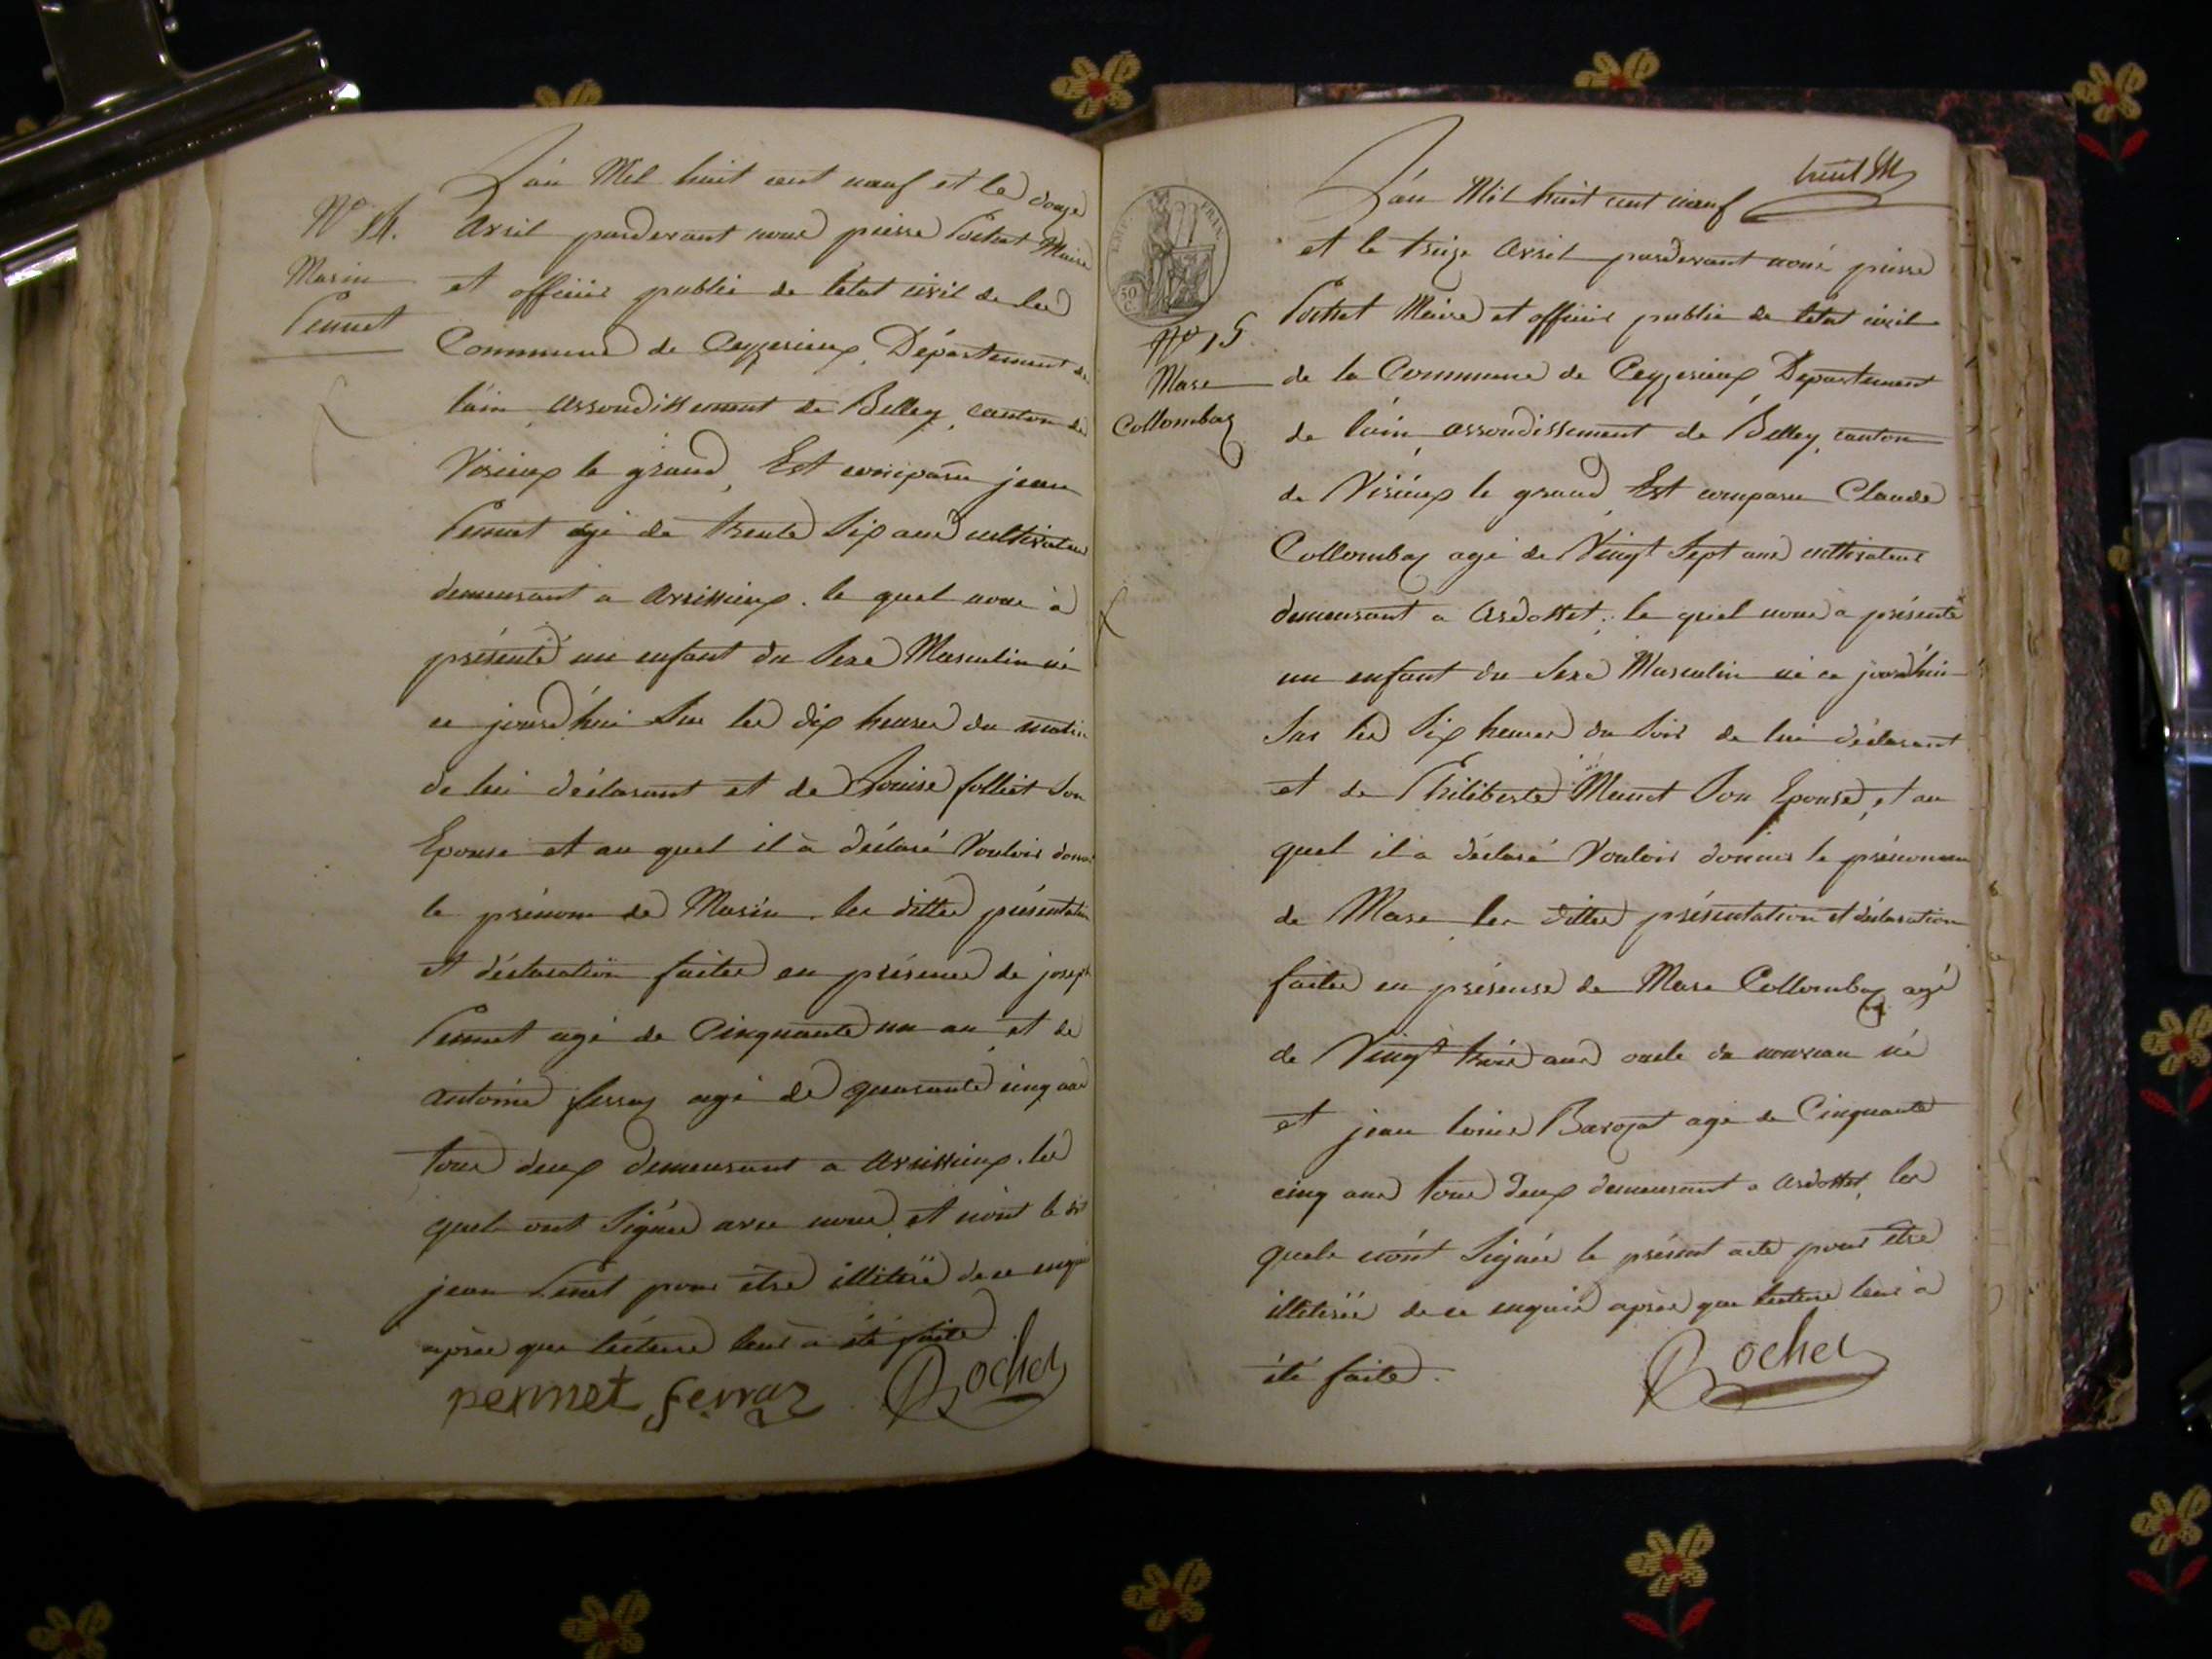 L'án Mil huit cent neuf et le douze
N° 14. avril pardevant nous pierre Pochet Maire
Marin et officier public de létat civil de la
Pennet
Commune de Ceyzerieux, Département de
l'ain arrondissement de Belley, canton de
Virieux le grand, Est comparu jean
Pennet agé de trente Six ans cultivateur
demeurant a avrissieux. le quel nous à
présenté un enfant du Sexe Masculin né
ce jourd'hui Sur les dix heures du matin
de lui déclarant et de Louise folliet Son
Epouse et au quel il à déclaré Vouloir donner
le prénom de Marin. les dittes présentation
et déclaration faites en présence de joseph
Pennet agé de Cinquante un an et de
antoine ferraz agé de quarante cinq ans
tous deux demeurant a avrissieux. les
quels ont Signés avec nous, et nónt le dit
jean Penet pour être illitéré de ce enquis
après que lécture leur à été faite
pennet ferraz Pochet
L'án Mil huit cent neuf
EMP. FRAN.
50
C.
et le treize avril pardevant nous pierre
Pochet Maire et officier public de létat civil
N° 15
Marc
Collombaz
de la Commune de Ceyzerieux Département
de l'ain, arrondissement de Belley, canton
de Virieux le grand, Est comparu Claude
Collombaz agé de Vingt Sept ans cultivateur
demeurant a ardosset; le quel nous à présenté
un enfant du Sexe Masculin né ce jourd'hui
Sur les Six heures du Soir de lui déclarant
et de Philiberte Munet Son Epouse, et au
quel il à déclaré Vouloir donner le prénom
de Marc les dittes présentation et déclaration
faites en présense de Marc Collombaz agé
de Vingt trois ans oncle du nouveau né
et jean louis Barozat agé de Cinquante
cinq ans tous deux demeurant a ardosset, les
quels nónt Signés le présent acte pour être
illitérés de ce enquis après que lecture leur à
été faite. Pochet